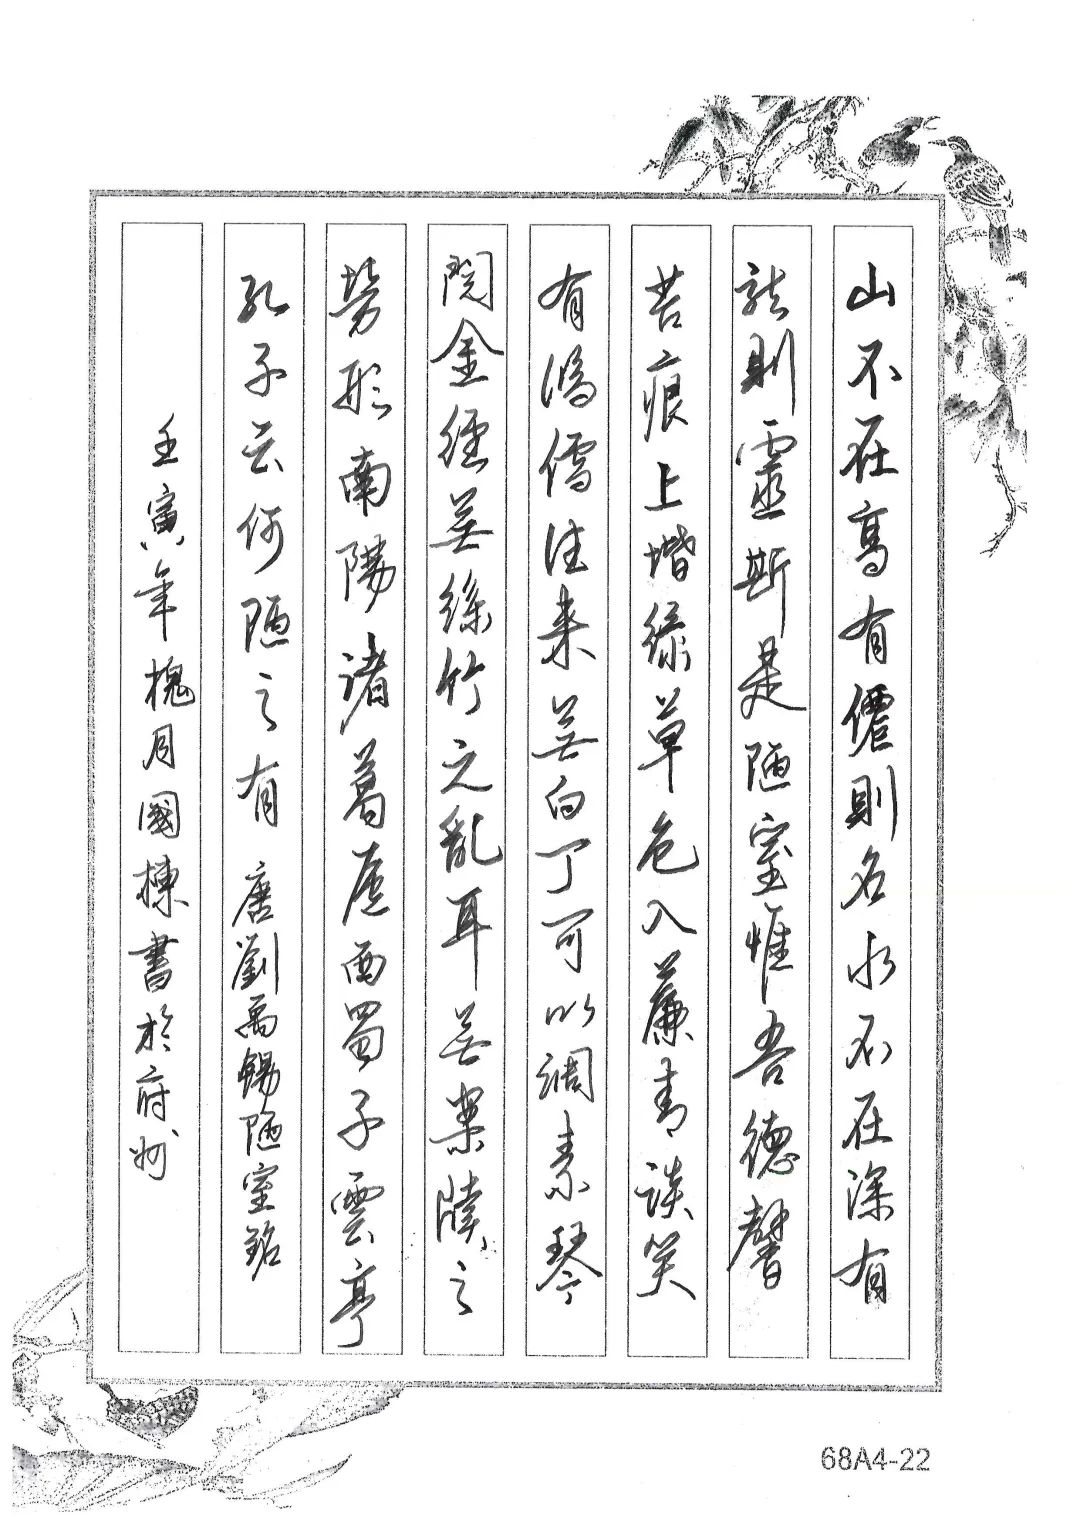 山不在高有僊則名水不在深有
龍則靈斯是陋室惟吾德馨
苔痕上堦綠草色入薕青談笑
有鴻儒往来無白丁可以調素琴
閲金經無絲竹之亂耳無案牘之
勞形南陽諸葛廬西蜀子雲亭
孔子云何陋之有 唐劉禹錫陋室銘
壬寅年槐月國棟書於府州
68A4-22